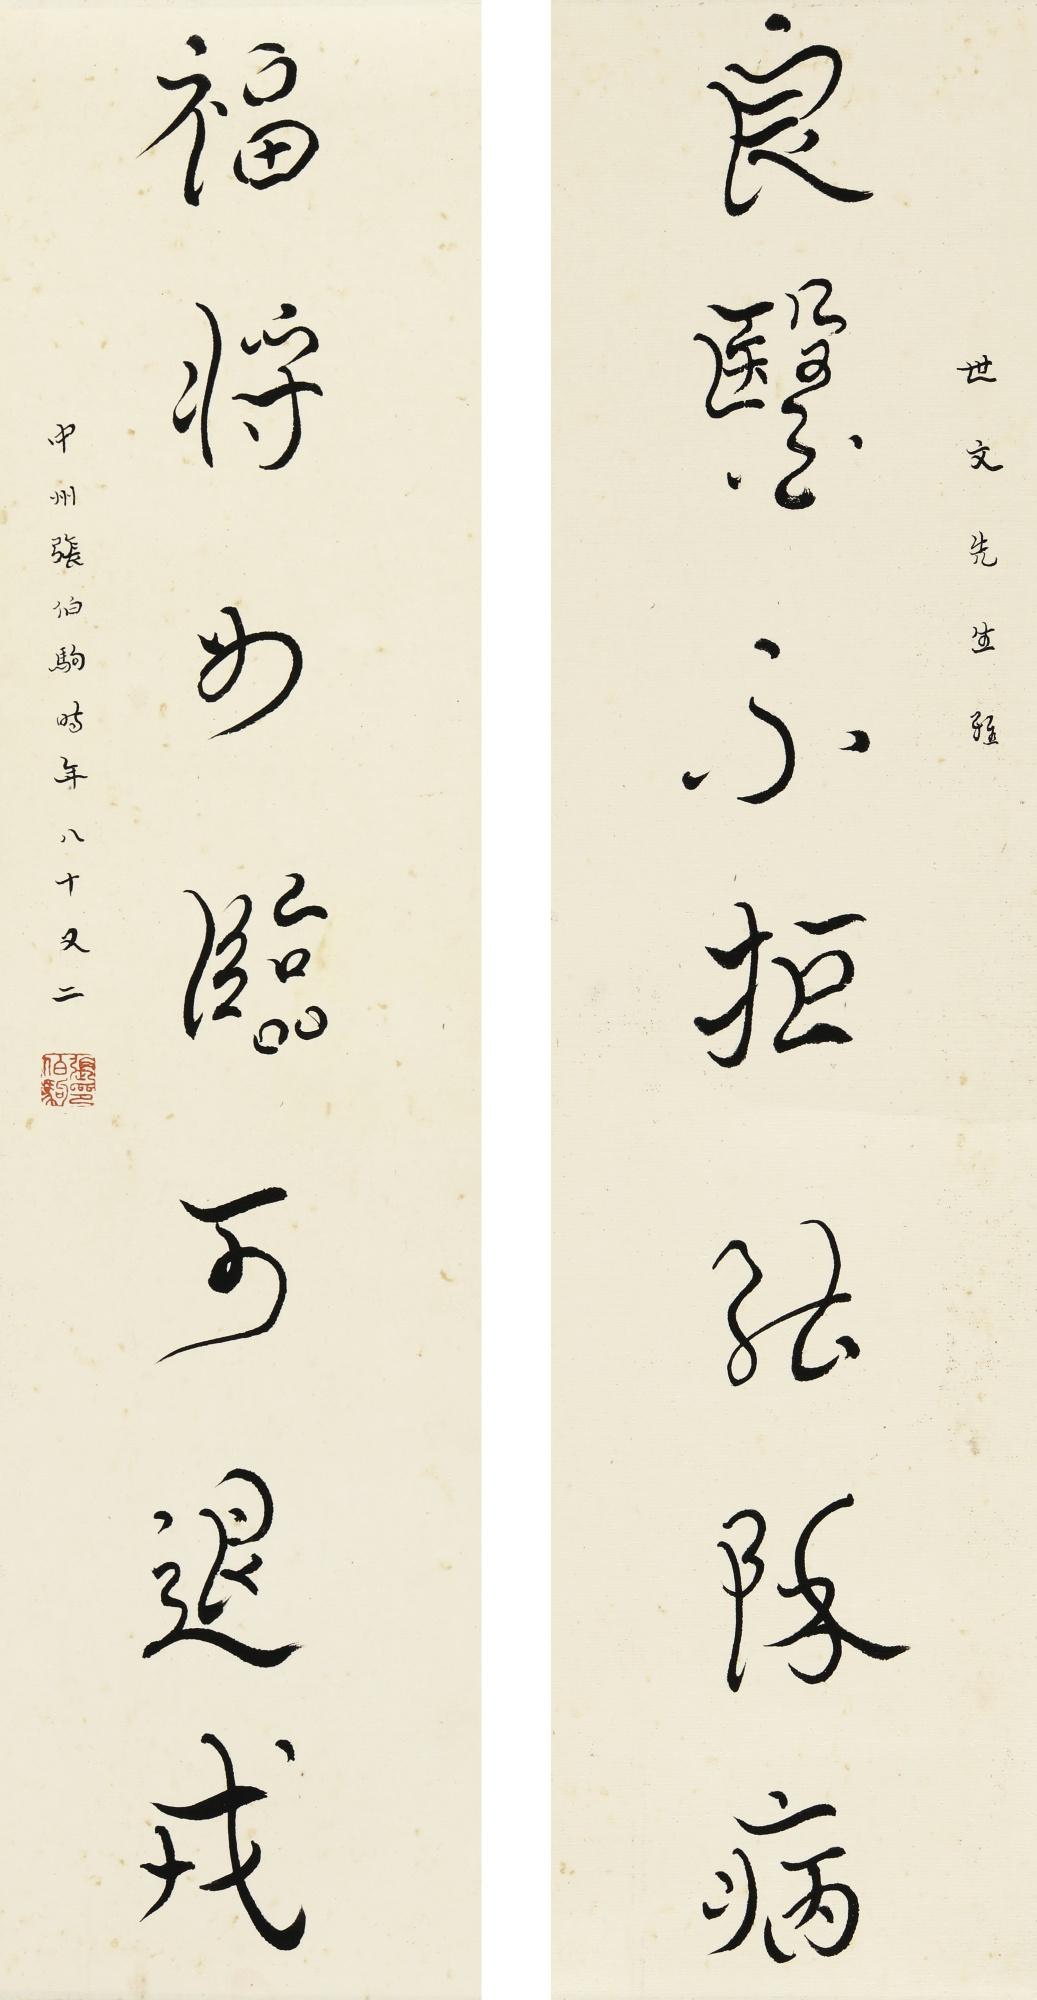 世文先生雅
良醫不拒能除病
福將如臨可退戎
中州張伯駒時年八十又二
張印伯駒